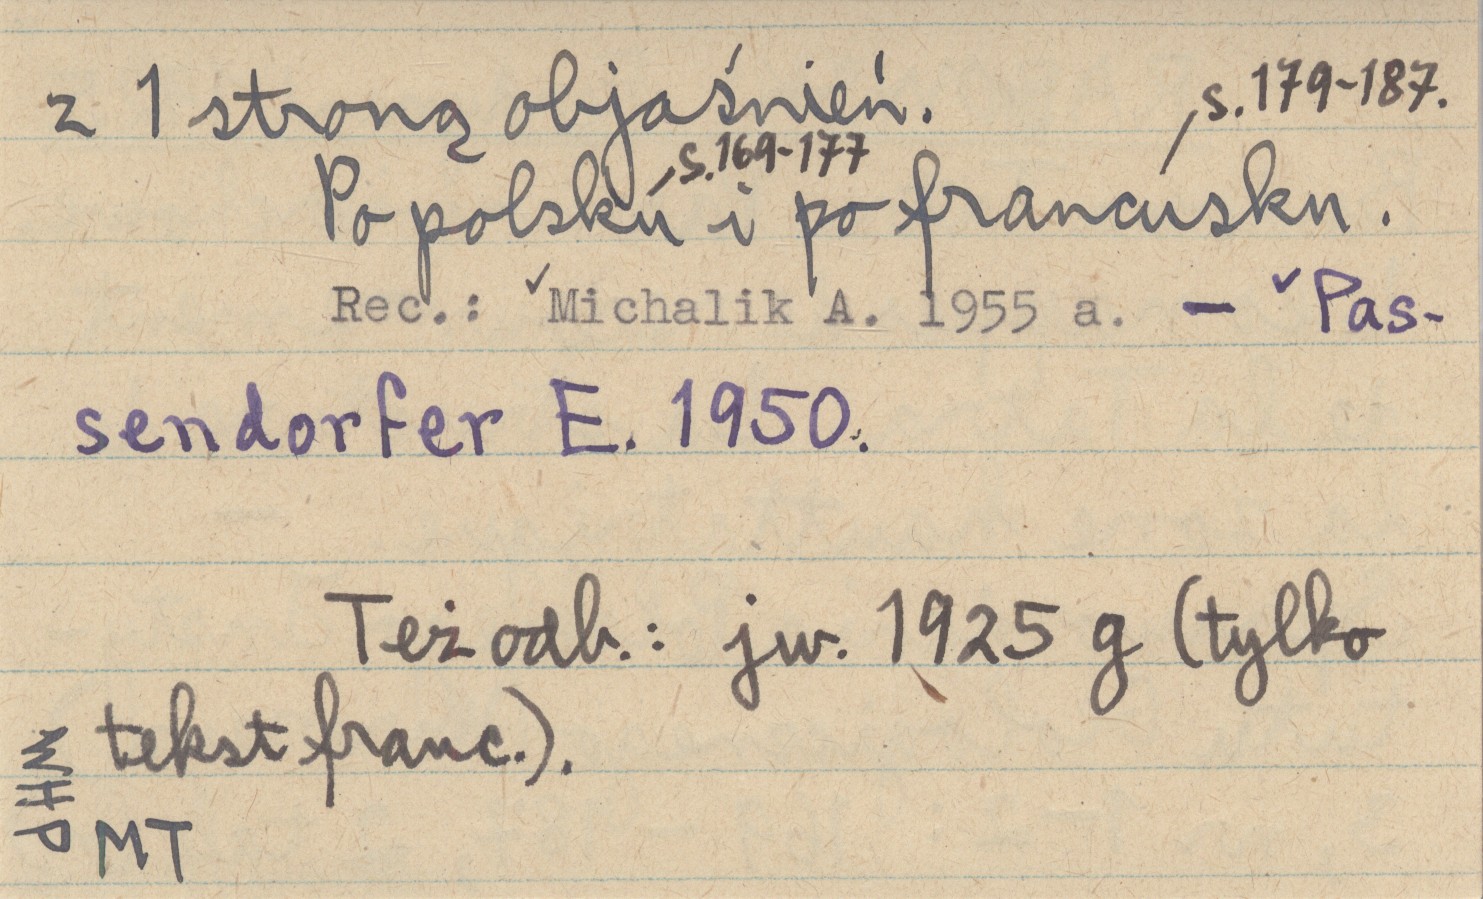 z 1 stroną objaśnień.
Po polsku, s.169-177 i po francusku, s.179-187.
Rec.: ✓Michalik A. 1955 a. – ✓Pas-
sendorfer E. 1950.
Też odb.: jw. 1925 g (tylko
tekst franc.).
WHP
MT